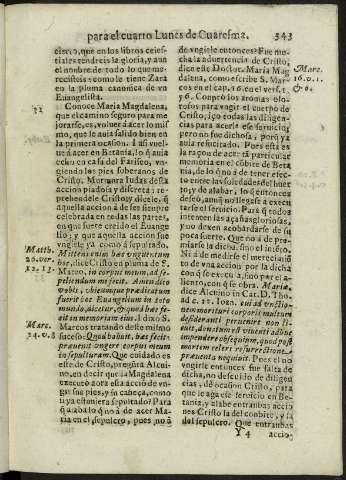 para el cuarto Lunes de Cuaresma. 343
cierto, que en los libros celes-
tiales tendreis la gloria, y aun
el nombre de todo lo que me-
recisteis: como le tiene Zara
en la pluma canonica de vn
Euangelista.
32
Conoce Maria Magdalena,
que el camino seguro para me
jorarse, es, voluer à àcer lo mis
mo, que le auia salido bien en
la primera ocasion. I assi vien-
do àcer en Betania, lo q̃ auia
echo en casa del Fariseo, vn-
giendo los pies soberanos de
Cristo. Murmura Iudas desta
accion piadosa y discreta: re-
prehendele Cristo y dicele, q̃
aquella accion à de ser siempre
celebrada en todas las partes,
en que fuere creido el Euange
lio; y que aquella accion fue
vngirle ya como à sepultado.
Matth.
26. ver.
12. 13.
Mittens enim hæc vnguentum
hoc, dice Cristo en pluma de S.
Mateo, in corpus meum, ad se-
peliendum me fecit. Amen dico
vobis, vbicumque prædicatum
fuerit hoc Euangelium in toto
mundo, dicetur, & quod hæc fe-
cit in memoriam eius. I dixo S.
Marc.
14. v. 8
Marcos tratando deste mismo
suceso: Quod habuit, hæc fecit:
præuenit vngere corpus meum
in sepulturam. Que cuidado es
este de Cristo, pregũta Alcui-
no, en decir que la Magdalena
executò aora essa acciõ de vn-
gir sus pies, y su cabeça, como
si ya estuuiera sepultado? Para
que alabalo q̃ no à de àcer Ma-
ria en el sepulcro, pues no à
de vngirle entonces? Fue mu-
cha la aduertencia de Cristo,
dice este Doctor. Maria Mag
dalena, como escribe S. Mar-
Marc.
16. v. 1.
& 6.
cos en el cap. 16. en el vers. 1.
y 6. Comprò los aromas olo-
rosos para vngir el cuerpo de
Cristo, i çò todas las diligen-
cias para acerle ese seruicio,
pero no fue dichosa, porq̃ ya
auia resucitado. Pues esta es
la raçon de acer tã particular
memoria en el cõbite de Beta
nia, de lo que nõ à de tener efec-
to entre las soledades del huer
to, y de alabar, lo q̃ entonces
deseò, aun q̃ no llegasse à execu
tarse el seruicio. Para q̃ todos
intenten las açañas gloriosas,
y no dexen acobardarse de su
poca suerte. Que no à de pre-
miarse la dicha, sino el intẽto.
Ni se à de medir el merecimiẽ
to de vna accion por la dicha
con q̃ se executa, sino por el a-
liento, con q̃ se obra. Maria,
dice Alcuino in Cat. D. Tho.
ad c. 12. Ioan. cui ad vnctio-
nem mortui corporis multum
desideranti peruenire non li-
cuit, donatum est viuenti adhuc
impendere obsequium, quod post
mortem celeri resurrectione
præuenta nequiuit. Pues el no
vngirle entonces fue falta de
dicha, no descuido de diligen-
cias, dè ocasion Cristo, para
que le aga ese seruicio en Be-
tania, y alabe entrambas accio
nes Cristo la del conbite, y la
del sepulcro. Que entrambas
Y 4 accio-